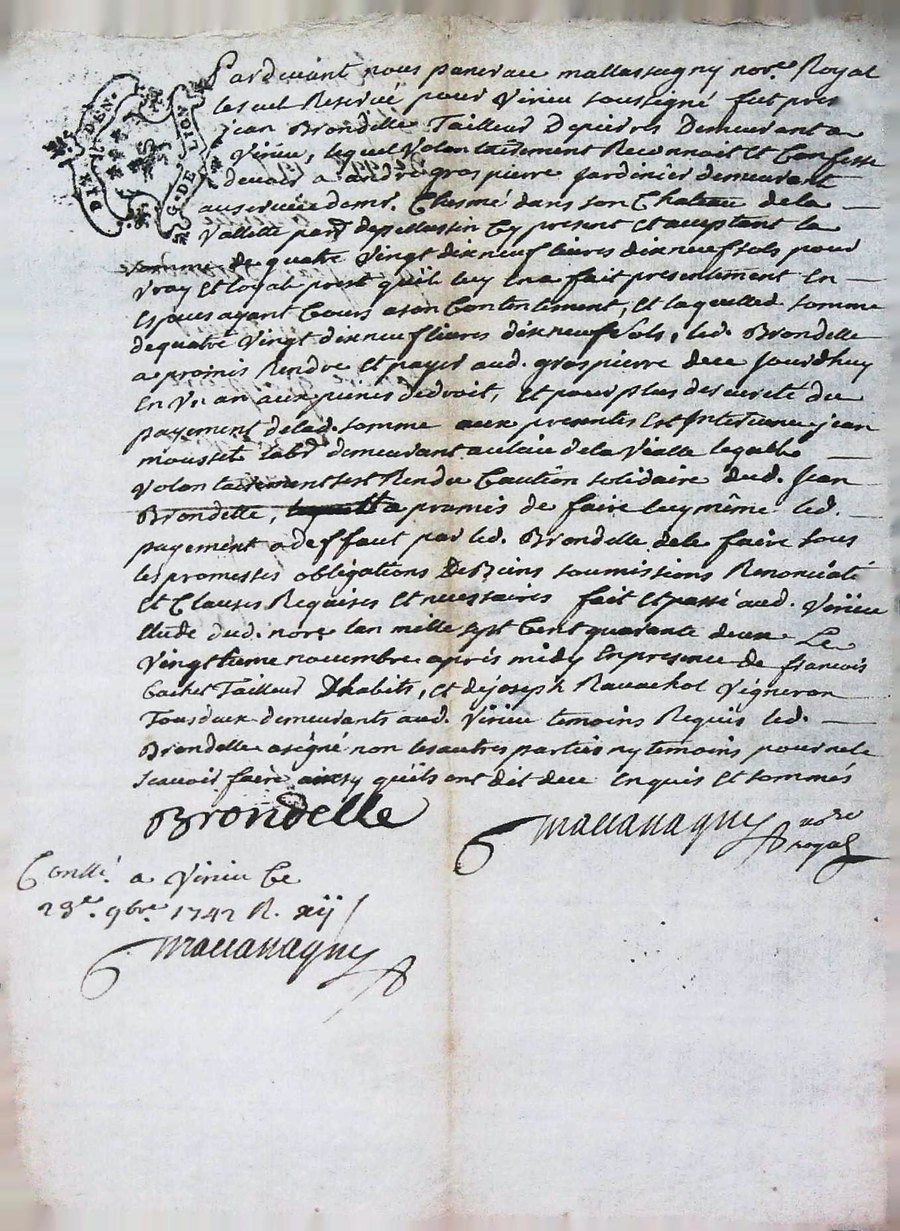 DIX DEN. G. DE LION
Pardevant nous pancrace mallassagny nore. Royal
Reservé pour Virieu soussigné fut pres
jean Brondelle Tailleur Depierres Demeurant a
Virieu, lequel volontairement Reconnoit Et Confesse
devoir a andré grospierre jardinier demeurant
au service demr. dans son Chateau dela
Vallette parr. depellussin Cy present et aceptant la
somme de quatre vingt dixneuf livres dixneuf sols pour
vray Et loyal prest quil luy En a fait presentement En
Especes ayant Cours a son Contentement, Et laquelled. somme
de quatre vingt dixneuf livres dixneuf sols, led. Brondelle
a promis Rendre Et payer aud. grospierre dece jourdhuy
En Un an aux peines de droit, Et pour plus de seureté du
payement delad. somme aux presentes Est Intervenu jean
mousset labr. demeurant au lieu dela Vialle lequel
volontairement sest Rendu Caution solidaire dud. Jean
Brondelle, a promis de faire luy même led.
payement a deffaut par led. Brondelle dele faire sous
les promesses obligations DeBiens soumissions Renonciatε
Et Clauses Requises Et necessaires fait Et passé aud. Virieu
Etude dud. nore lan mille sept Cent quarante deux Le
vingtieme novembre après midy En presence de francois
gachet Tailleur Dhabits, et dejoseph Ravachol Vigneron
Tous deux demeurants aud. Virieu temoins Requis led.
Brondelle a signé non les autres parties ny temoins pour ne le
scavoir faire ainsy quils ont dit dece Enquis Et sommés
Brondelle
Mallassagny nore
royal
Conllé a Virieu Le
23e. 9bre 1742 R. xij s
Mallassagny